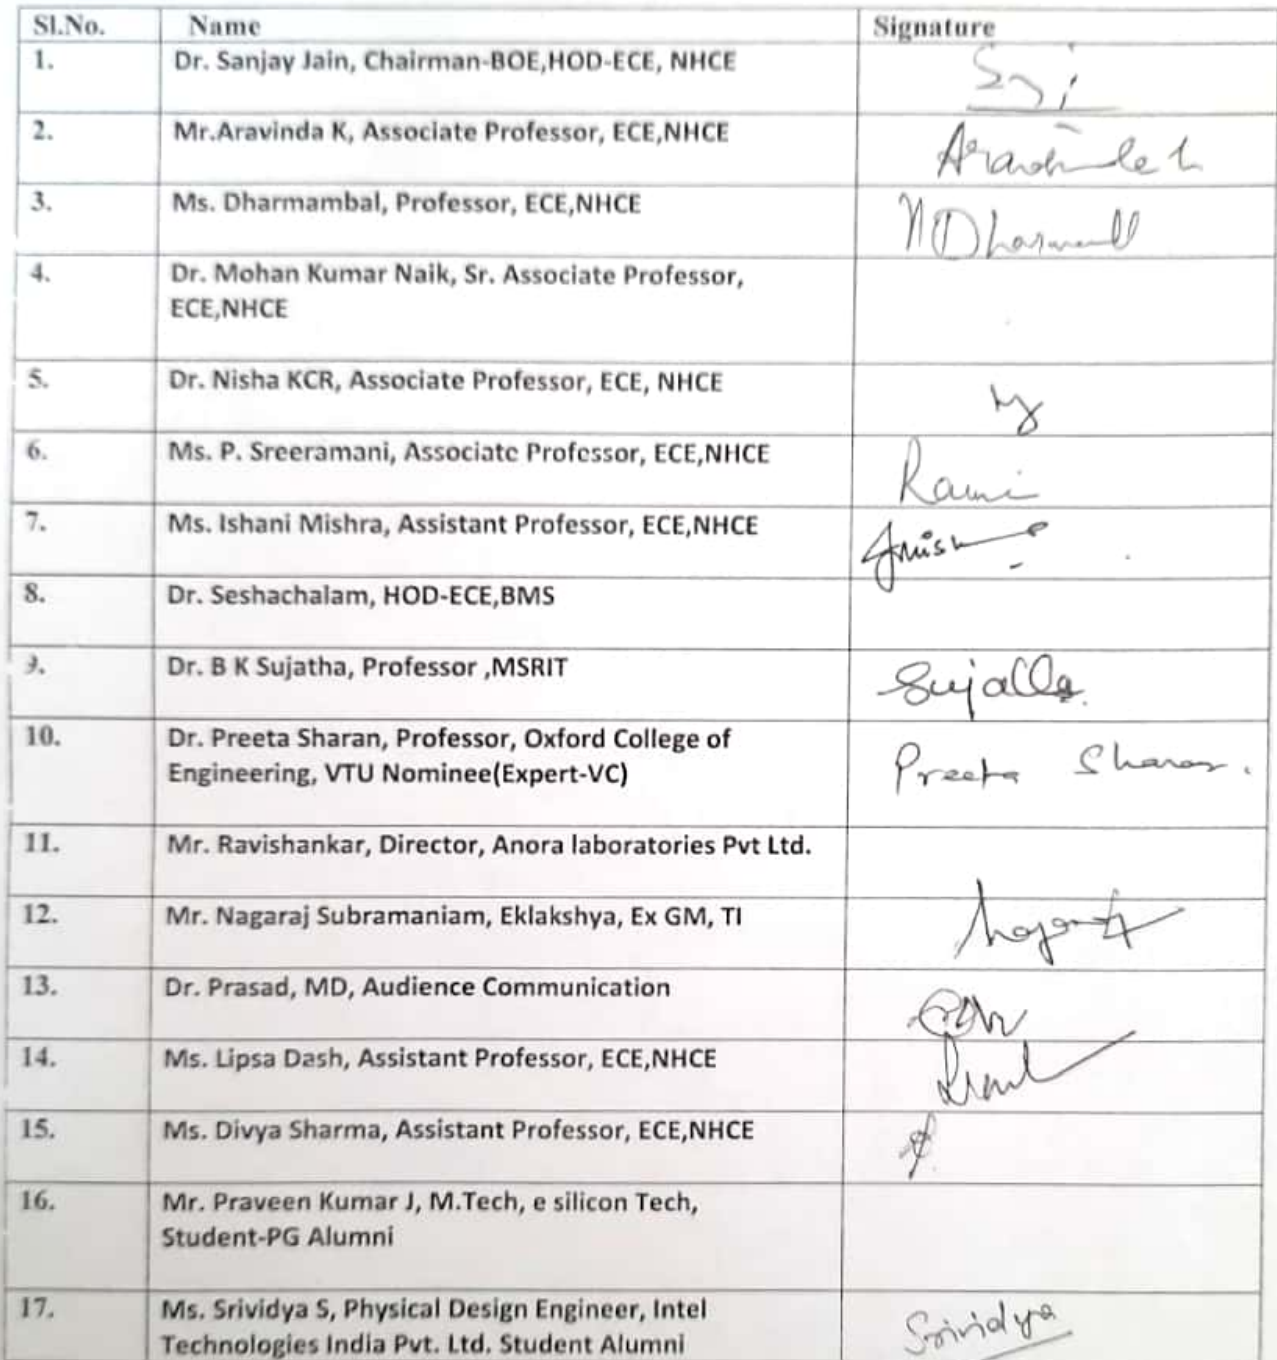 Sl.No. Name Signature
1. Dr. Sanjay Jain, Chairman-BOE,HOD-ECE, NHCE
2. Mr.Aravinda K, Associate Professor, ECE,NHCE
3. Ms. Dharmambal, Professor, ECE,NHCE
4. Dr. Mohan Kumar Naik, Sr. Associate Professor,
ECE,NHCE
5. Dr. Nisha KCR, Associate Professor, ECE, NHCE
6. Ms. P. Sreeramani, Associate Professor, ECE,NHCE
Rami
7. Ms. Ishani Mishra, Assistant Professor, ECE,NHCE
8. Dr. Seshachalam, HOD-ECE,BMS
9. Dr. B K Sujatha, Professor ,MSRIT
10. Dr. Preeta Sharan, Professor, Oxford College of
Engineering, VTU Nominee(Expert-VC)
Preeta Sharan.
11. Mr. Ravishankar, Director, Anora laboratories Pvt Ltd.
12. Mr. Nagaraj Subramaniam, Eklakshya, Ex GM, TI
13. Dr. Prasad, MD, Audience Communication
14. Ms. Lipsa Dash, Assistant Professor, ECE,NHCE
15. Ms. Divya Sharma, Assistant Professor, ECE,NHCE
16. Mr. Praveen Kumar J, M.Tech, e silicon Tech,
Student-PG Alumni
17. Ms. Srividya S, Physical Design Engineer, Intel
Technologies India Pvt. Ltd. Student Alumni
Srividya